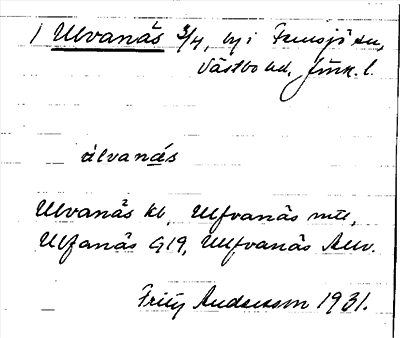 1 Ulvanäs 3/4, by i Femsjö sn,
Västbo hd, Jönk. l.
álvanäs
Ulvanäs kb, Ulfvanäs mtl,
Ulfanäs G19, Ulfvanäs
Fritz Andersson 1931.